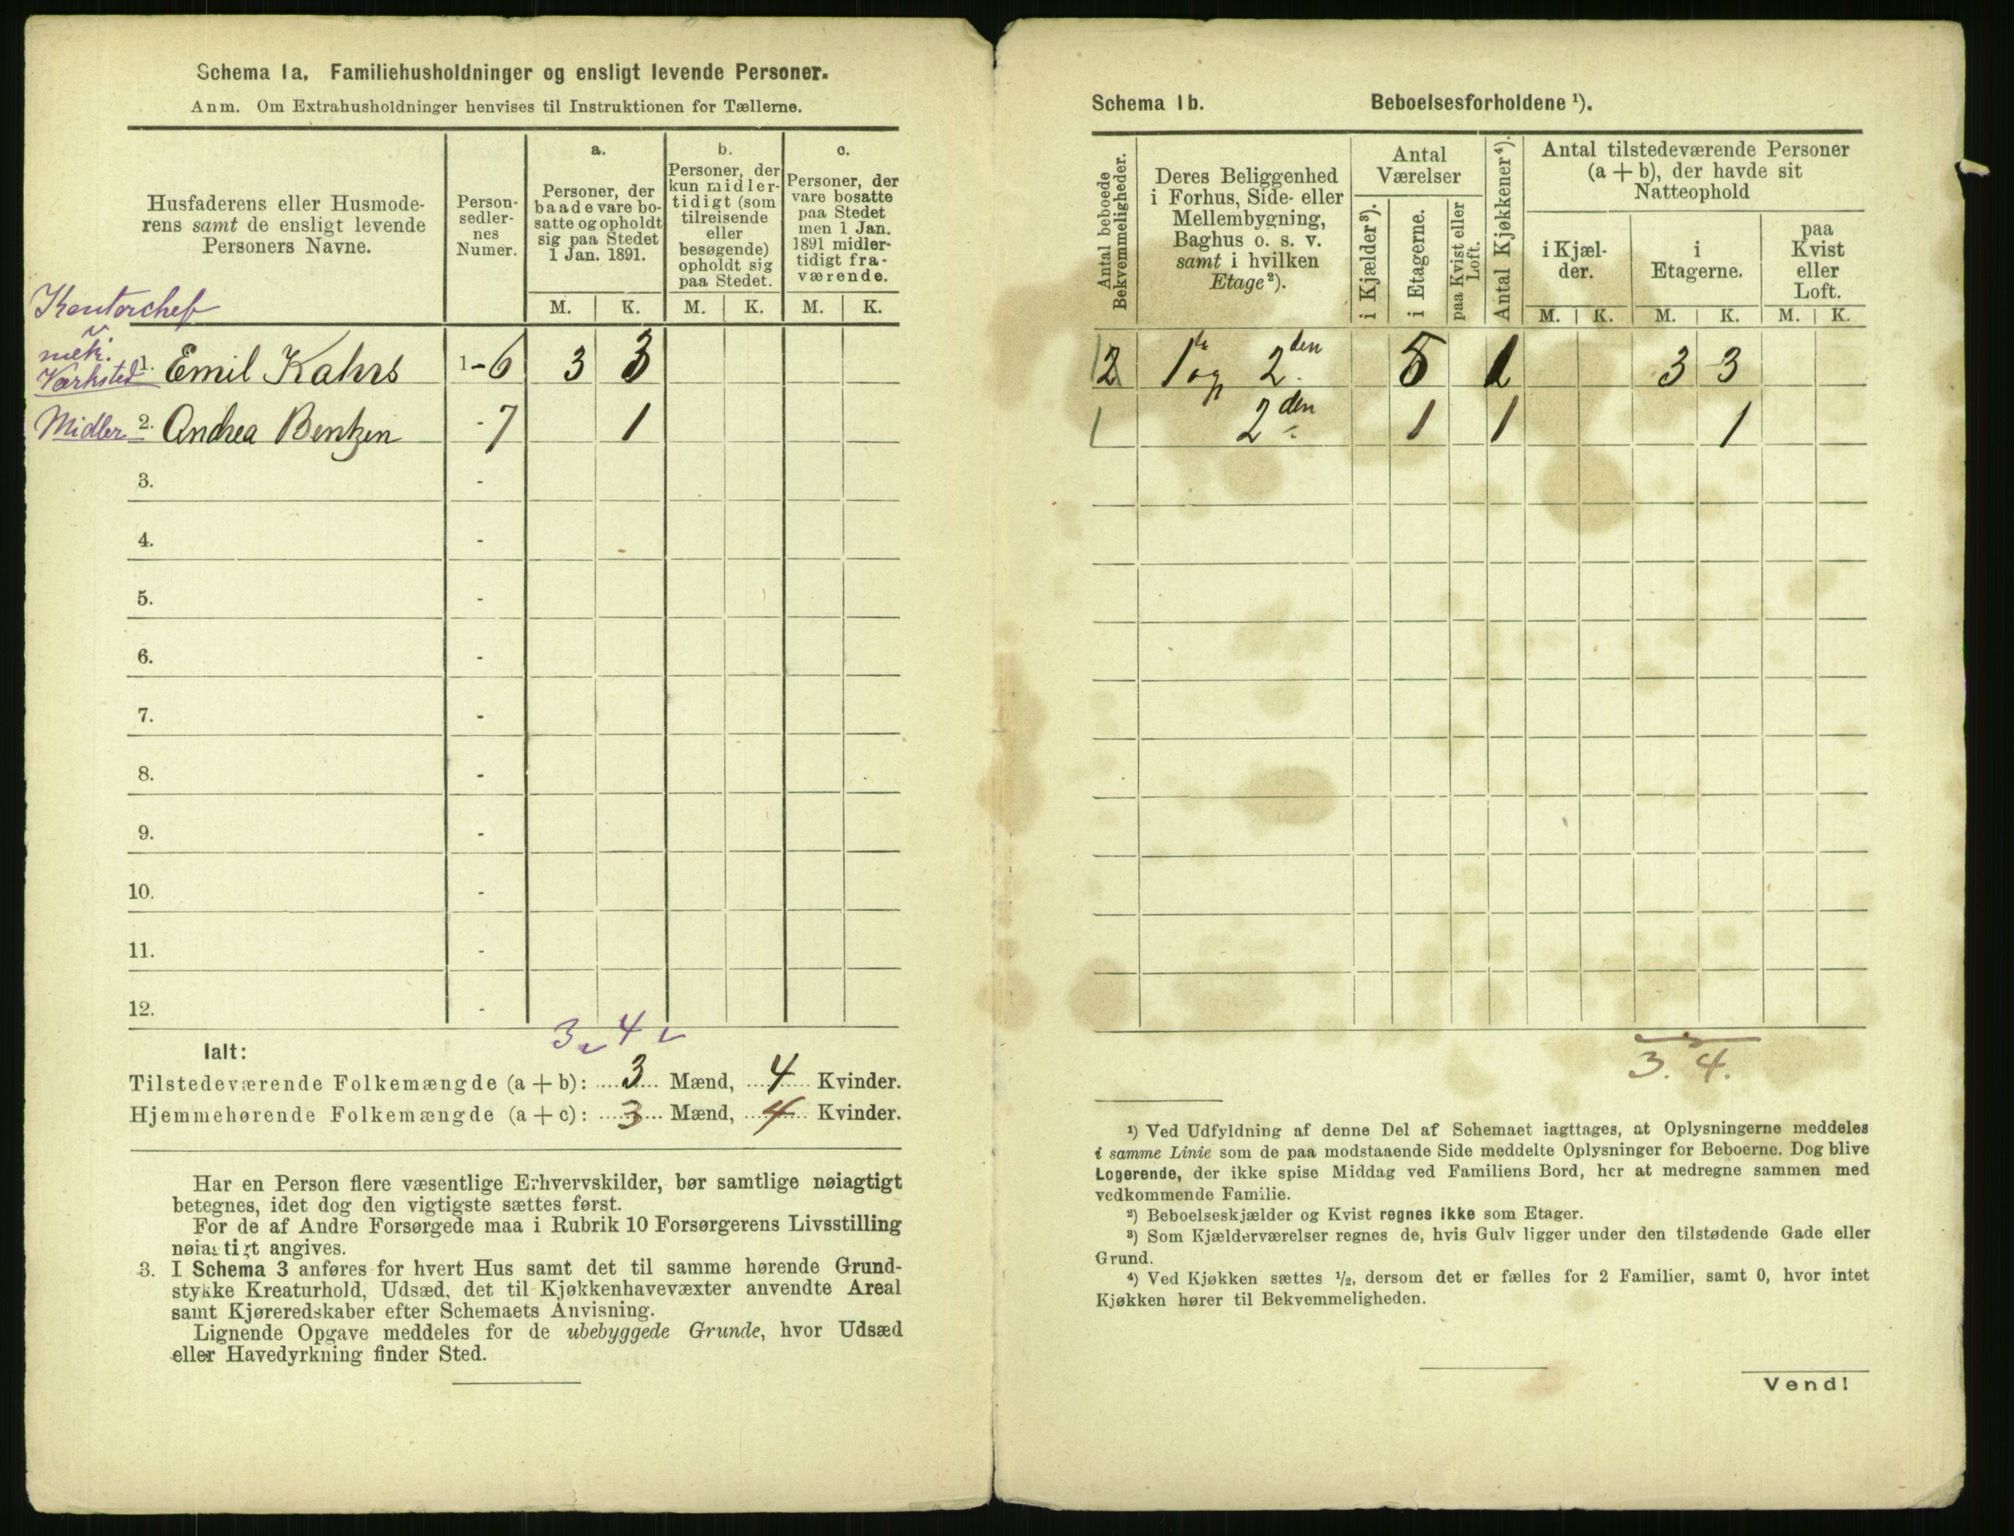 Schema 1a. Familiehusholdninger og ensligt levende Personer.
Anm. Om Extrahusholdninger henvises til Instruktionen for Tællerne.
Husfaderens eller Husmode-
rens samt de ensligt levende
Personers Navne.
Person-
sedler-
nes
Numer.
a.
Personer, der
baade vare bo-
satte og opholdt
sig paa Stedet
1 Jan. 1891.
b.
Personer, der
kun midler-
tidigt (som
tilreisende
eller
besøgende)
opholdt sig
paa Stedet.
c.
Personer, der
vare bosatte
paa Stedet
men 1 Jan.
1891 midler-
tidigt fra-
værende.
M. K. M. K. M. K.
Kontorchef
v.
mek.
Værksted
1. Emil Kahrs 1-6 3 3
Midler 2. Andrea Bentzen -7 1
3. -
4. -
5. -
6. -
7. -
8. -
9. -
10. -
11. -
12. -
3 4
Ialt:
Tilstedeværende Folkemængde (a + b): 3 Mænd, 4 Kvinder.
Hjemmehørende Folkemængde (a + c): 3 Mænd, 4 Kvinder.
Har en Person flere væsentlige Erhvervskilder, bør samtlige nøiagtigt
betegnes, idet dog den vigtigste sættes først.
For de af Andre Forsørgede maa i Rubrik 10 Forsørgerens Livsstilling
nøiagtigt angives.
3. I Schema 3 anføres for hvert Hus samt det til samme hørende Grund-
stykke Kreaturhold, Udsæd, det til Kjøkkenhavevæxter anvendte Areal
samt Kjøreredskaber efter Schemaets Anvisning.
Lignende Opgave meddeles for de ubebyggede Grunde, hvor Udsæd
eller Havedyrkning finder Sted.
Schema 1b. Beboelsesforholdene ¹).
Antal beboede
Bekvemmeligheder.
Deres Beliggenhed
i Forhus, Side- eller
Mellembygning,
Baghus o. s. v.
samt i hvilken
Etage²).
Antal
Værelser
i Kjælder³).
i Etagerne.
paa Kvist eller
Loft.
Antal Kjøkkener⁴).
Antal tilstedeværende Personer
(a + b), der havde sit
Natteophold
i Kjæl-
der.
i
Etagerne.
paa
Kvist
eller
Loft.
M. K. M. K. M. K.
2 1ste og 2den 5 1 3 3
1 2den 1 1 1
3. 4.
¹) Ved Udfyldning af denne Del af Schemaet iagttages, at Oplysningerne meddeles
i samme Linie som de paa modstaaende Side meddelte Oplysninger for Beboerne. Dog blive
Logerende, der ikke spise Middag ved Familiens Bord, her at medregne sammen med
vedkommende Familie.
²) Beboelseskjælder og Kvist regnes ikke som Etager.
³) Som Kjælderværelser regnes de, hvis Gulv ligger under den tilstødende Gade eller
Grund.
⁴) Ved Kjøkken sættes ½, dersom det er fælles for 2 Familier, samt 0, hvor intet
Kjøkken hører til Bekvemmeligheden.
Vend!